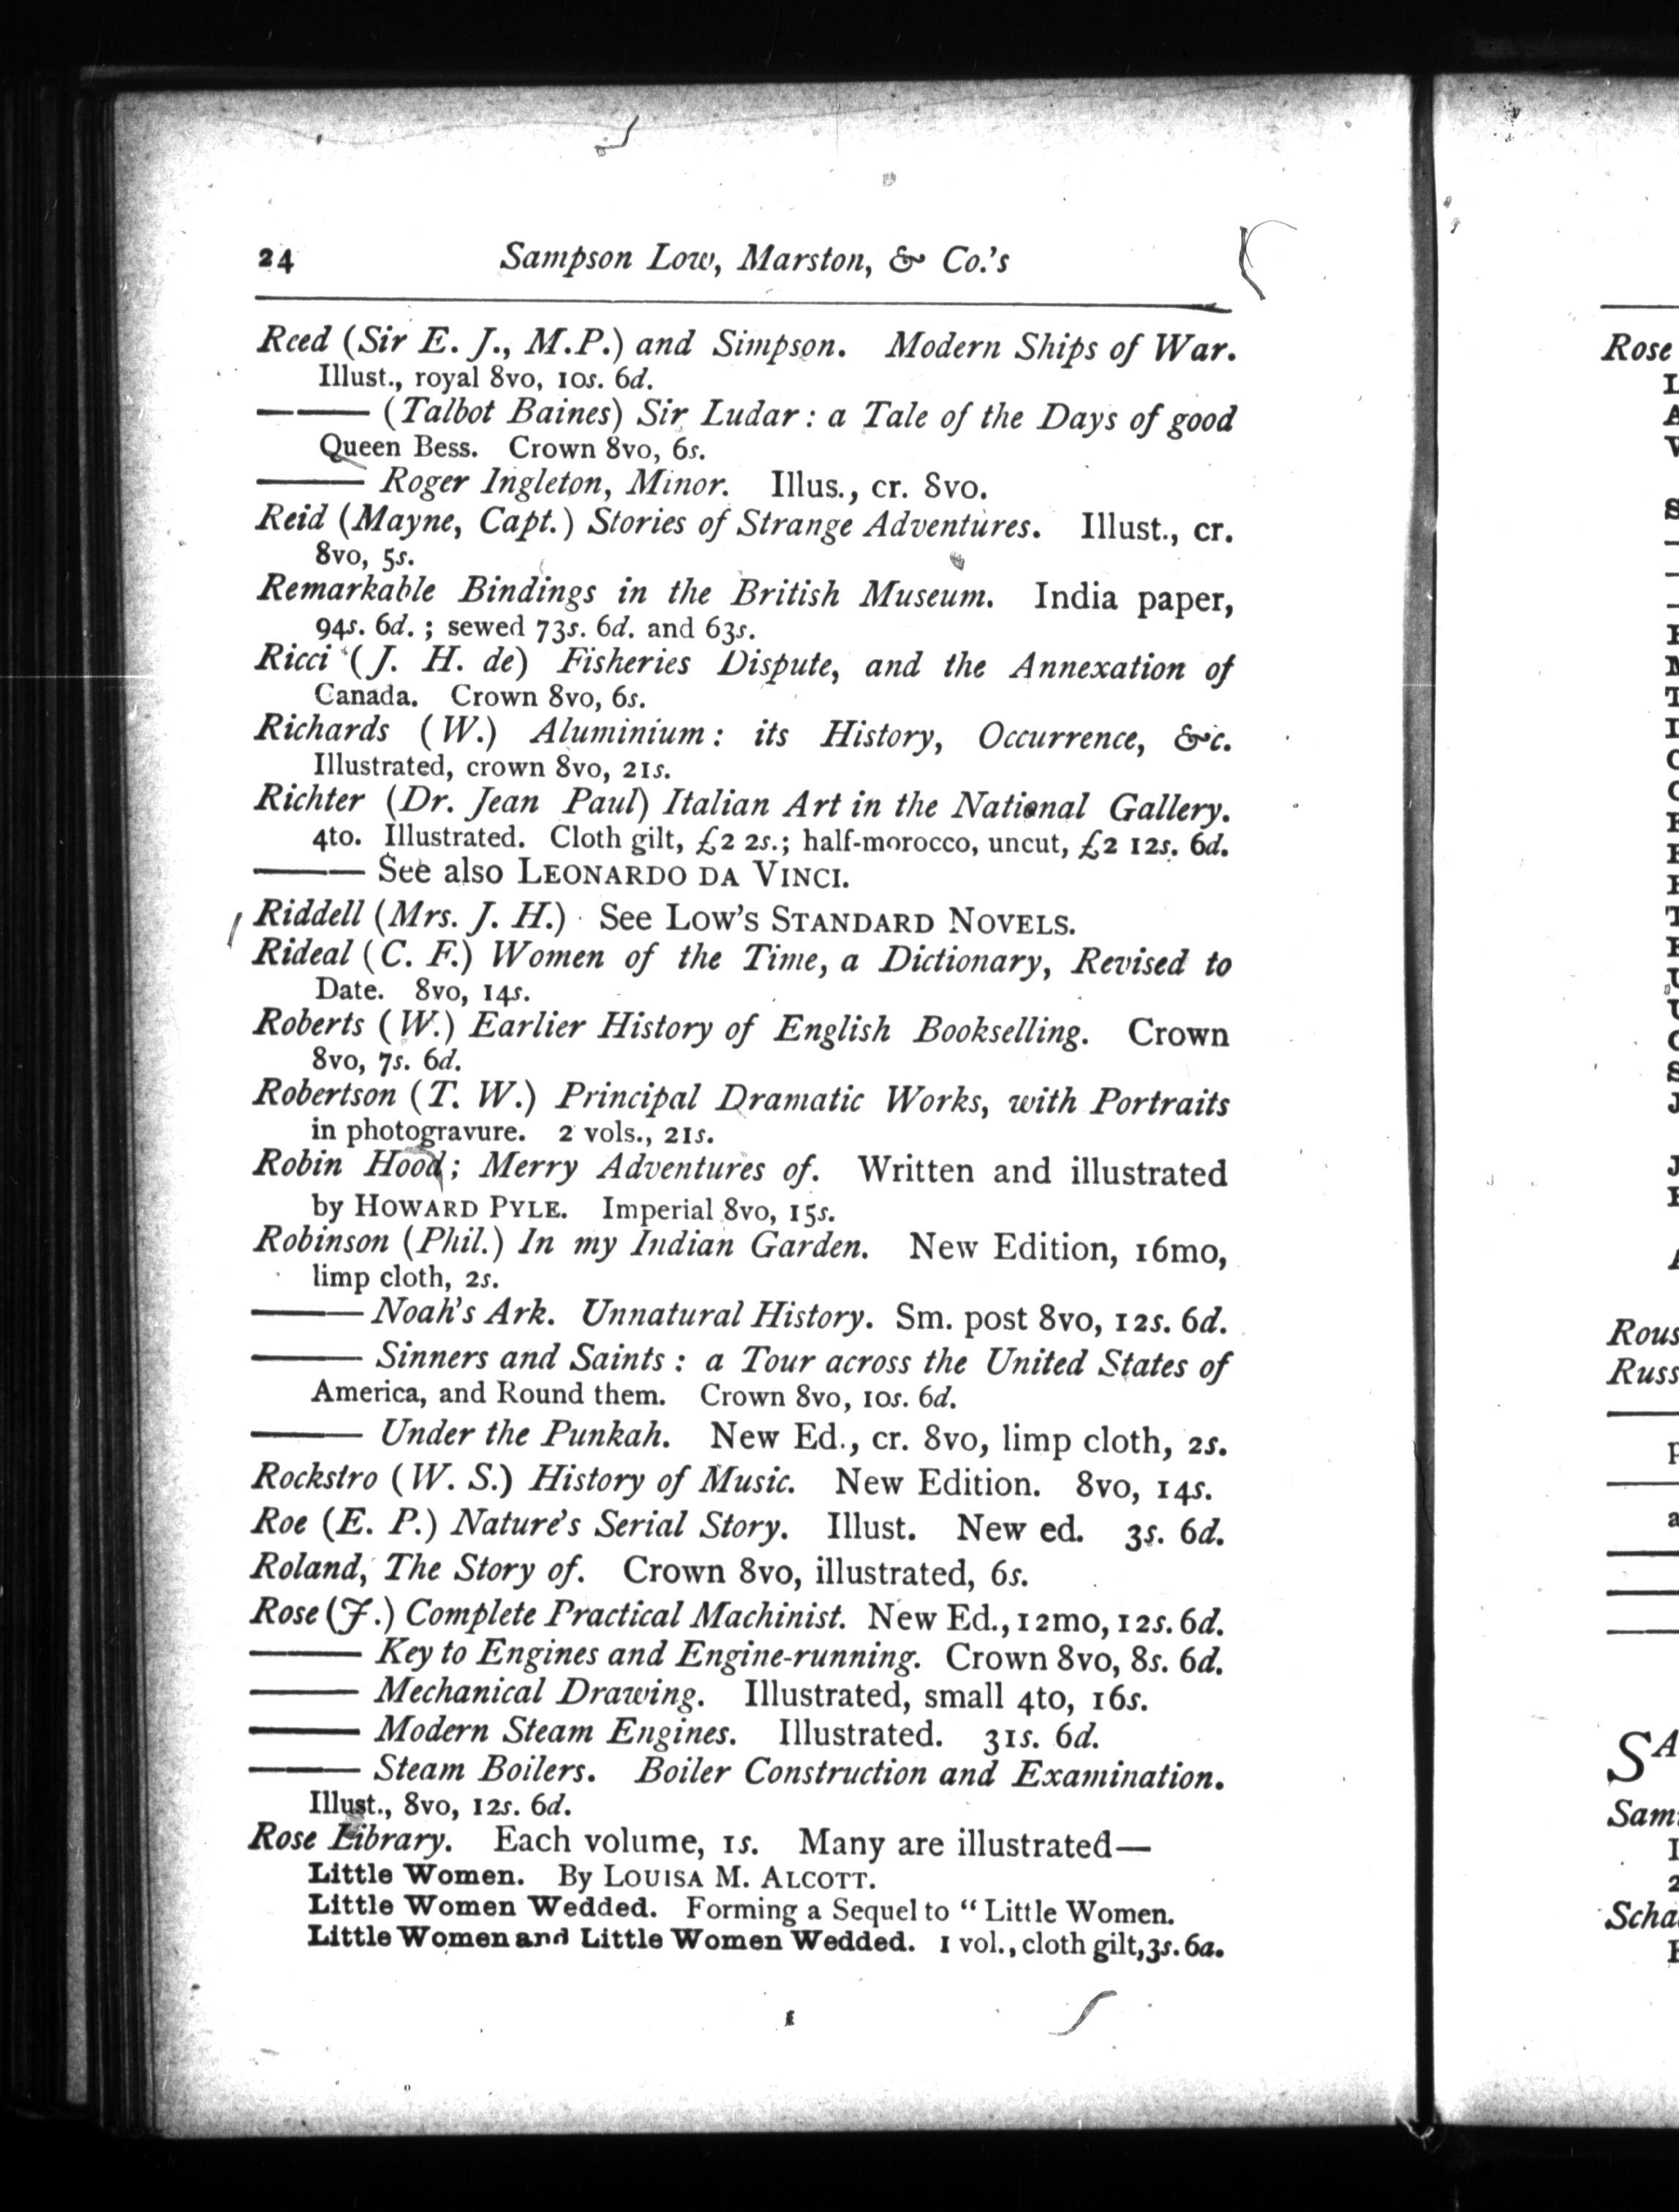 24 Sampson Low, Marston, & Co.'s
Reed (Sir E. J., M.P.) and Simpson. Modern Ships of War.
Illust., royal 8vo, 10s. 6d.
——— (Talbot Baines) Sir Ludar: a Tale of the Days of good
Queen Bess. Crown 8vo, 6s.
——— Roger Ingleton, Minor. Illus., cr. 8vo.
Reid (Mayne, Capt.) Stories of Strange Adventures. Illust., cr.
8vo, 5s.
Remarkable Bindings in the British Museum. India paper,
94s. 6d.; sewed 73s. 6d. and 63s.
Ricci (J. H. de) Fisheries Dispute, and the Annexation of
Canada. Crown 8vo, 6s.
Richards (W.) Aluminium: its History, Occurrence, &c.
Illustrated, crown 8vo, 21s.
Richter (Dr. Jean Paul) Italian Art in the National Gallery.
4to. Illustrated. Cloth gilt, £2 2s.; half-morocco, uncut, £2 12s. 6d.
——— See also LEONARDO DA VINCI.
Riddell (Mrs. J. H.) See LOW'S STANDARD NOVELS.
Rideal (C. F.) Women of the Time, a Dictionary, Revised to
Date. 8vo, 14s.
Roberts (W.) Earlier History of English Bookselling. Crown
8vo, 7s. 6d.
Robertson (T. W.) Principal Dramatic Works, with Portraits
in photogravure. 2 vols., 21s.
Robin Hood; Merry Adventures of. Written and illustrated
by HOWARD PYLE. Imperial 8vo, 15s.
Robinson (Phil.) In my Indian Garden. New Edition, 16mo,
limp cloth, 2s.
——— Noah's Ark. Unnatural History. Sm. post 8vo, 12s. 6d.
——— Sinners and Saints: a Tour across the United States of
America, and Round them. Crown 8vo, 10s. 6d.
——— Under the Punkah. New Ed., cr. 8vo, limp cloth, 2s.
Rockstro (W. S.) History of Music. New Edition. 8vo, 14s.
Roe (E. P.) Nature's Serial Story. Illust. New ed. 3s. 6d.
Roland, The Story of. Crown 8vo, illustrated, 6s.
Rose (J.) Complete Practical Machinist. New Ed., 12mo, 12s. 6d.
——— Key to Engines and Engine-running. Crown 8vo, 8s. 6d.
——— Mechanical Drawing. Illustrated, small 4to, 16s.
——— Modern Steam Engines. Illustrated. 31s. 6d.
——— Steam Boilers. Boiler Construction and Examination.
Illust., 8vo, 12s. 6d.
Rose Library. Each volume, 1s. Many are illustrated—
Little Women. By LOUISA M. ALCOTT.
Little Women Wedded. Forming a Sequel to "Little Women.
Little Women and Little Women Wedded. 1 vol., cloth gilt, 3s. 6d.
Rose